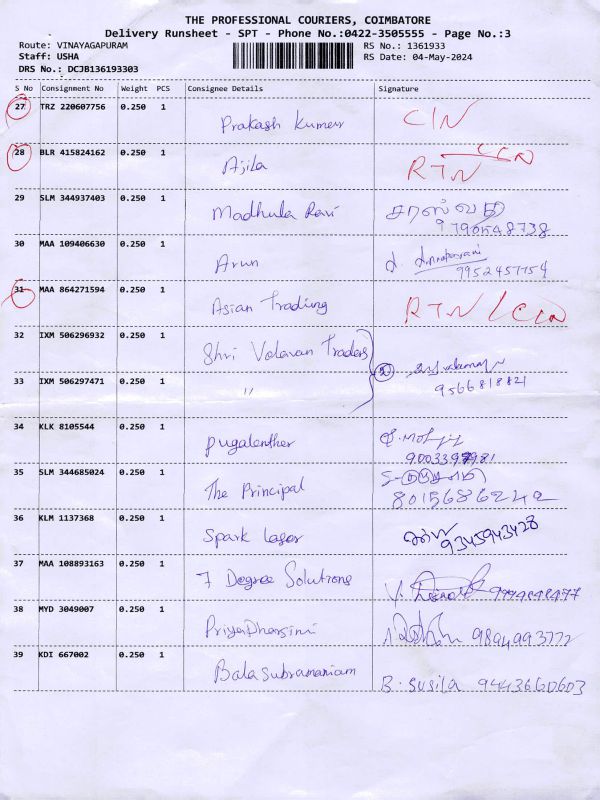 THE PROFESSIONAL COURIERS, COIMBATORE
Delivery Runsheet - SPT - Phone No.:0422-3505555 - Page No.:3
Route: VINAYAGAPURAM RS No.: 1361933
Staff: USHA RS Date: 04-May-2024
DRS No.: DCJB136193303
S No Consignment No Weight PCS Consignee Details Signature
27 TRZ 220607756 0.250 1 Prakash Kumar CIN
28 BLR 415824162 0.250 1 Ajila RTN
29 SLM 344937403 0.250 1 Madhula Ravi சரஸ்வதி
9790548738
30 MAA 109406630 0.250 1 Arun
9952457754
31 MAA 864271594 0.250 1 Asian Trading RTN / CIN
32 IXM 506296932 0.250 1 Shri Velavan Traders
33 IXM 506297471 0.250 1 " 2
9566818821
34 KLK 8105544 0.250 1 Pugalenther
35 SLM 344685024 0.250 1 The Principal
8015686242
36 KLM 1137368 0.250 1 Spark Laser
9345943428
37 MAA 108893163 0.250 1 7 Degree Solutions
38 MYD 3049007 0.250 1 PriyaDharsini 9894993772
39 KDI 667002 0.250 1 Balasubramaniam B. Susila 9443660603